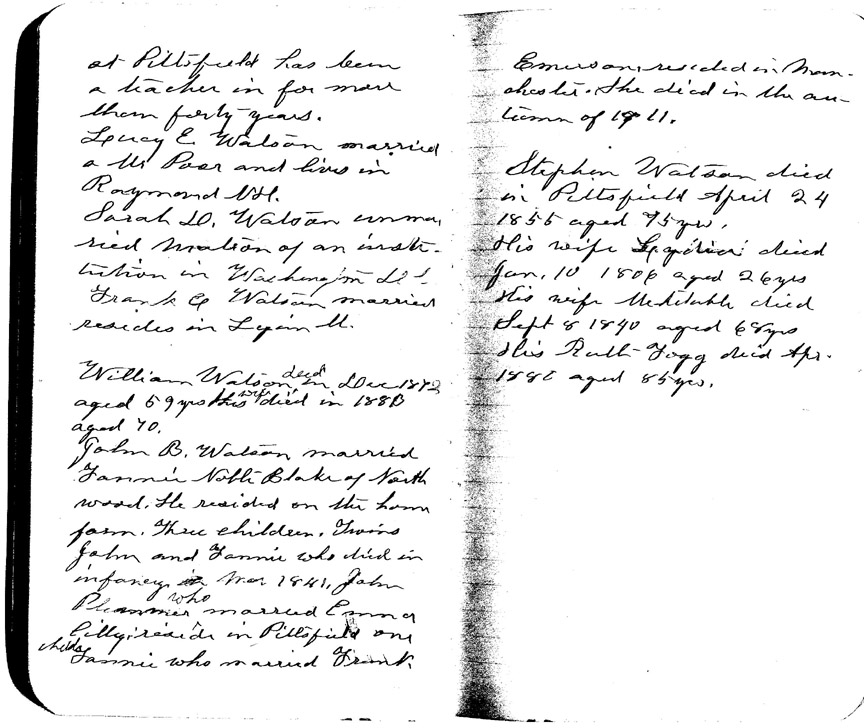 at Pittsfield has been
a teacher in for more
than forty years.
Lucy E. Watson married
a Mr Poor and lives in
Raymond NH.
Sarah D. Watson unmar
ried matron of an insti-
tution in Washington D.C.
Frank E Watson married
resides in Lynn M.
William Watson died in Dec 1872
aged 59 yrs His wife died in 1883
aged 70.
John B. Watson married
Fannie Noble Blake of North
wood. He resided on the home
farm. Three children. Twins
John and Fannie who died in
infancy Mar 1841. John
Plummer who married Emma
reside in Pittsfield one
child
Fannie who married Frank
Emerson, resided in Man-
chester. She died in the au-
tumn of 1911.
Stephen Watson died
in Pittsfield April 24
1855 aged 75 yrs.
His wife died
Jan. 10 1806 aged 26 yrs
His wife Mehitable died
Sept 8 1840 aged 68 yrs
His Ruth Fogg died Apr.
aged 85 yrs.